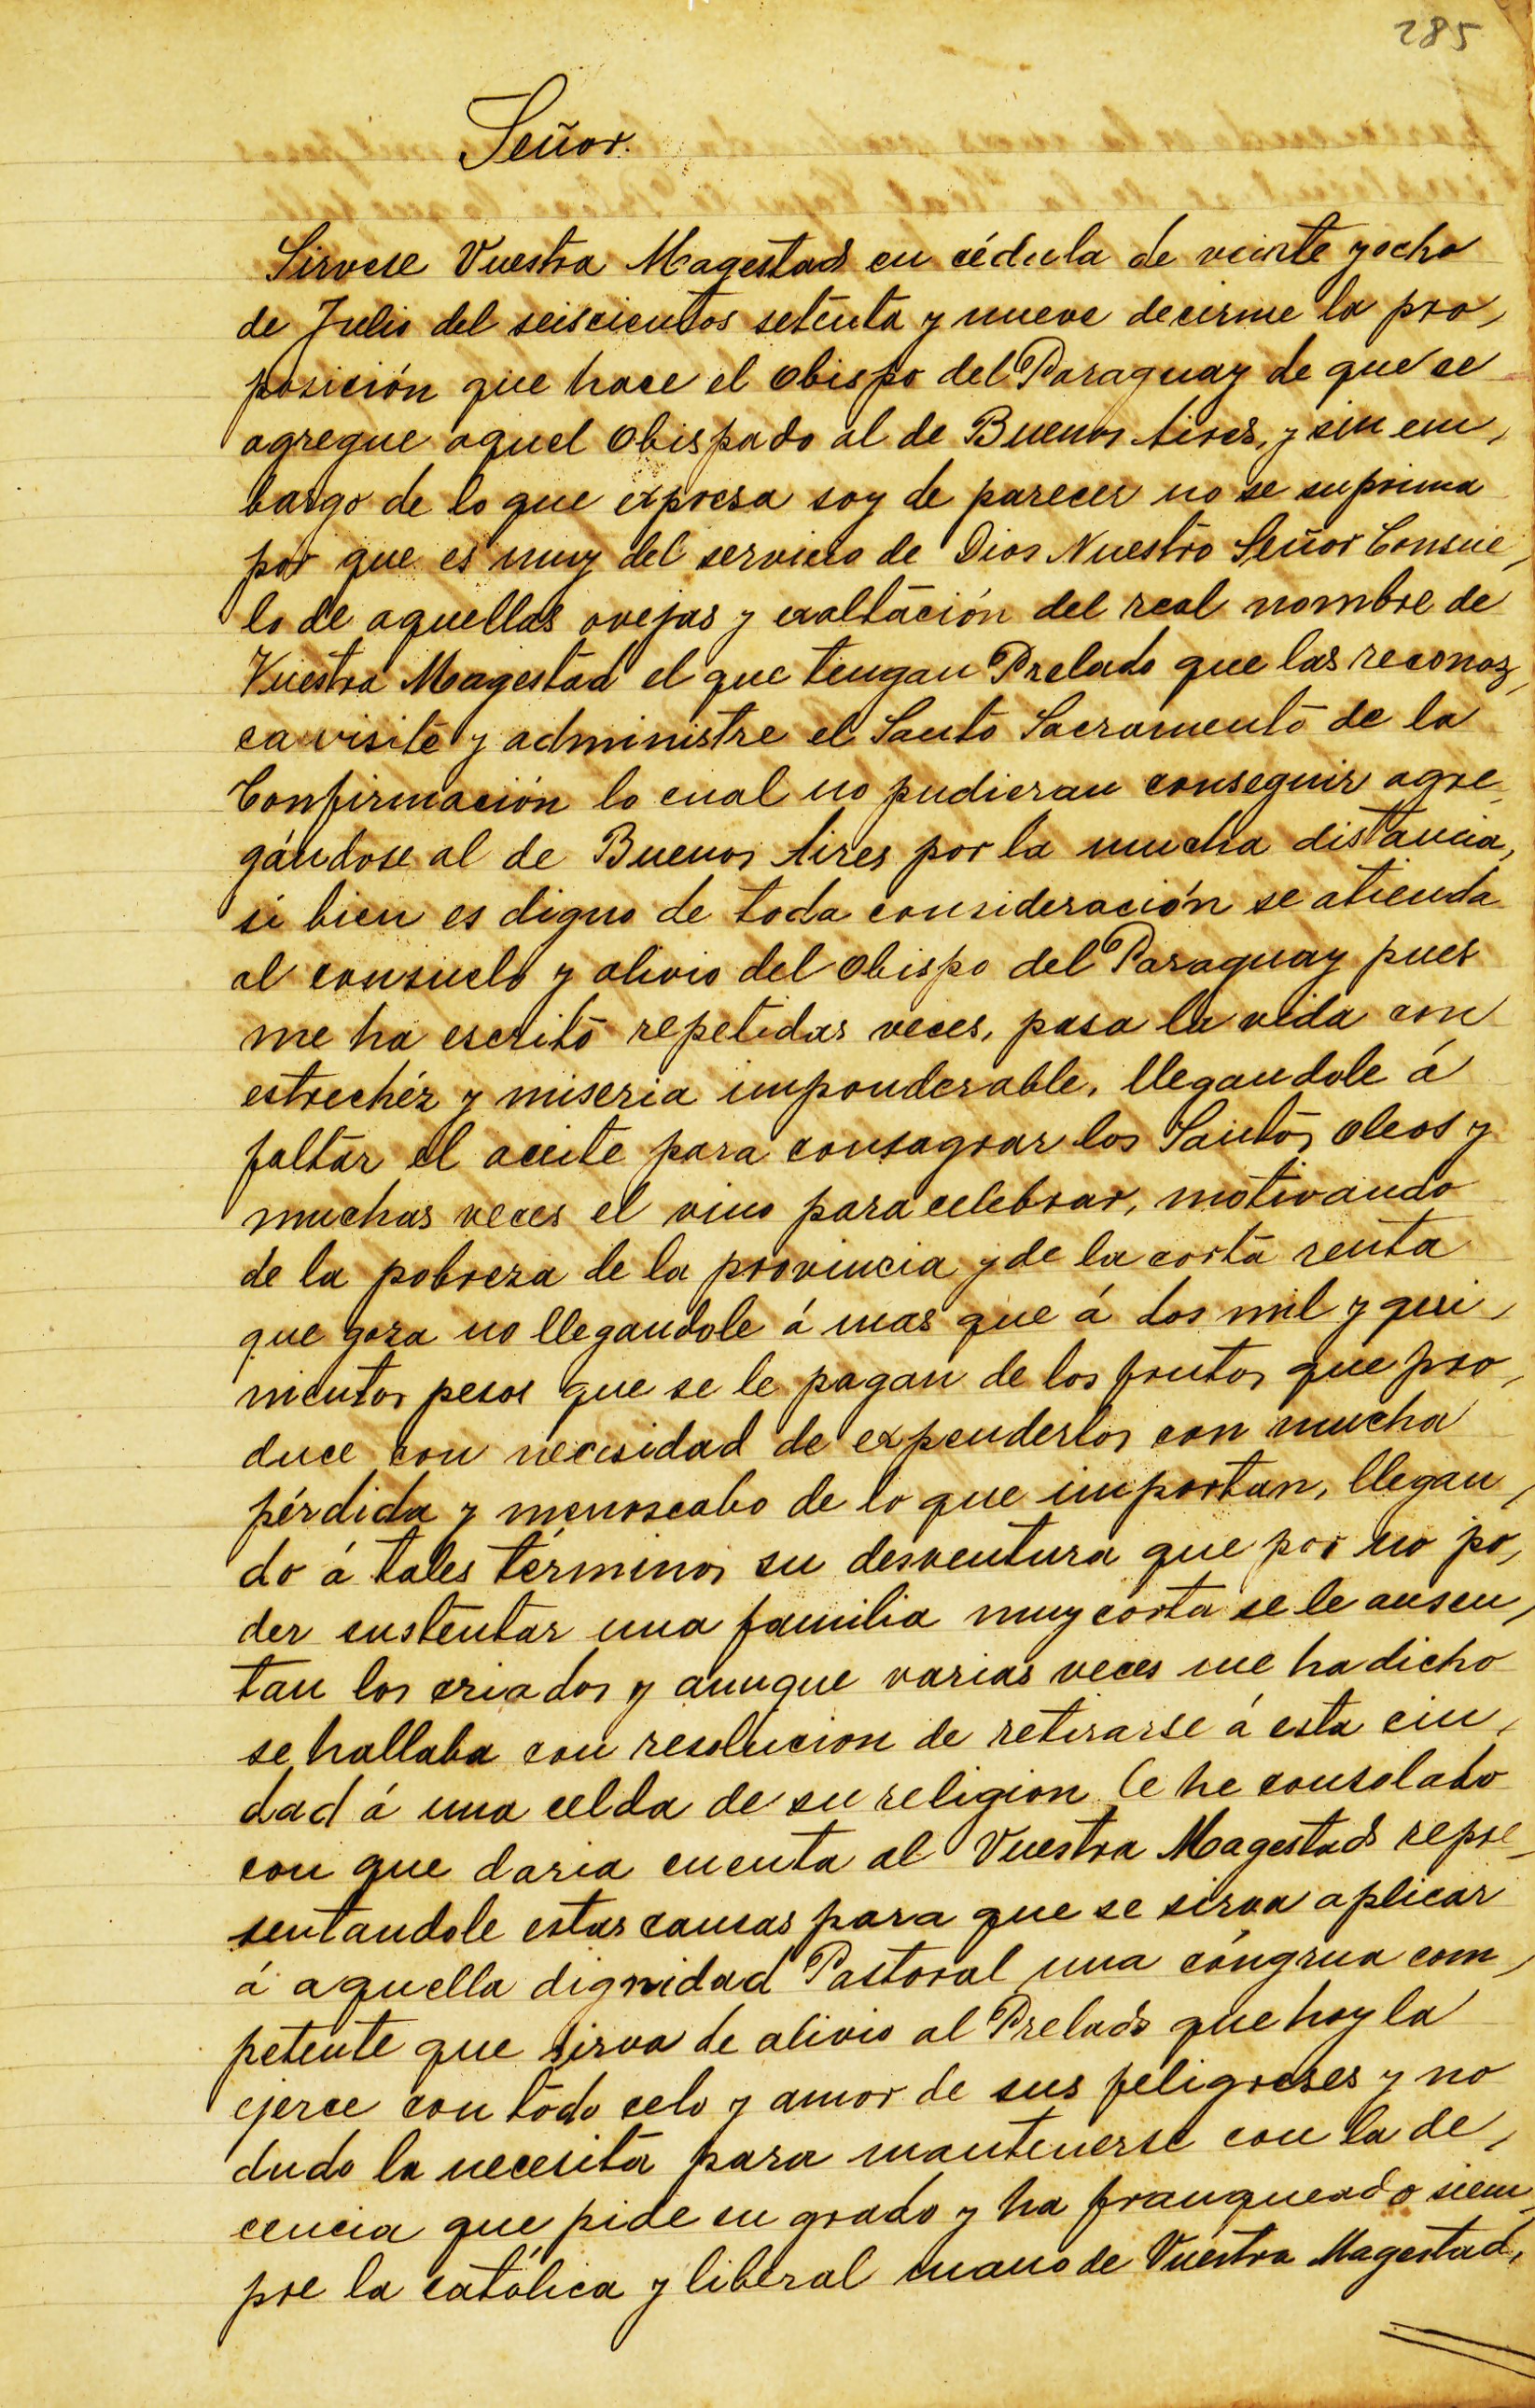 285
Señor.
Sirvese Vuestra Magestad en cédula de veinte y ocho
de Julio del seiscientos setenta y nueve decirme la pro,
posición que hace el Obispo del Paraguay de que se
agregue aquel Obispado al de Buenos Aires, y sin em,
bargo de lo que expresa soy de parecer no se suprima
por que es muy del servicio de Dios Nuestro Señor Consue,
lo de aquellas ovejas y exaltación del real nombre de
Vuestra Magestad el que tengan Prelado que las reconoz,
ca visite y administre el Santo Sacramento de la
Confirmación lo cual no pudieran conseguir agre,
gándose al de Buenos Aires por la mucha distancia,
si bien es digno de toda consideración se atienda
al consuelo y alivio del Obispo del Paraguay pues
me ha escrito repetidas veces, pasa la vida con
estrechéz y miseria imponderable, llegandole á
faltar el aceite para consagrar los Santos oleos y
muchas veces el vino para celebrar, motivando
de la pobreza de la provincia y de la corta renta
que goza no llegandole á mas que á dos mil y qui,
nientos pesos que se le pagan de los frutos que pro,
duce con necesidad de expenderlos con mucha
pérdida y menoscabo de lo que importan, llegan,
do á tales términos su desventura que por no po,
der sustentar una familia muy corta se le ausen,
tan los criados y aunque varias veces me ha dicho
se hallaba con resolucion de retirarse á esta ciu,
dad á una celda de su religion le he consolado
con que daria cuenta al Vuestra Magestad repre,
sentandole estas causas para que se sirva aplicar
á aquella dignidad Pastoral una cóngrua com,
petente que sirva de alivio al Prelado que hoy la
ejerce con todo celo y amor de sus feligreses y no
dudo la necesita para mantenerse con la de,
cencia que pide su grado y ha franqueado siem,
pre la católica y liberal mano de Vuestra Magestad,